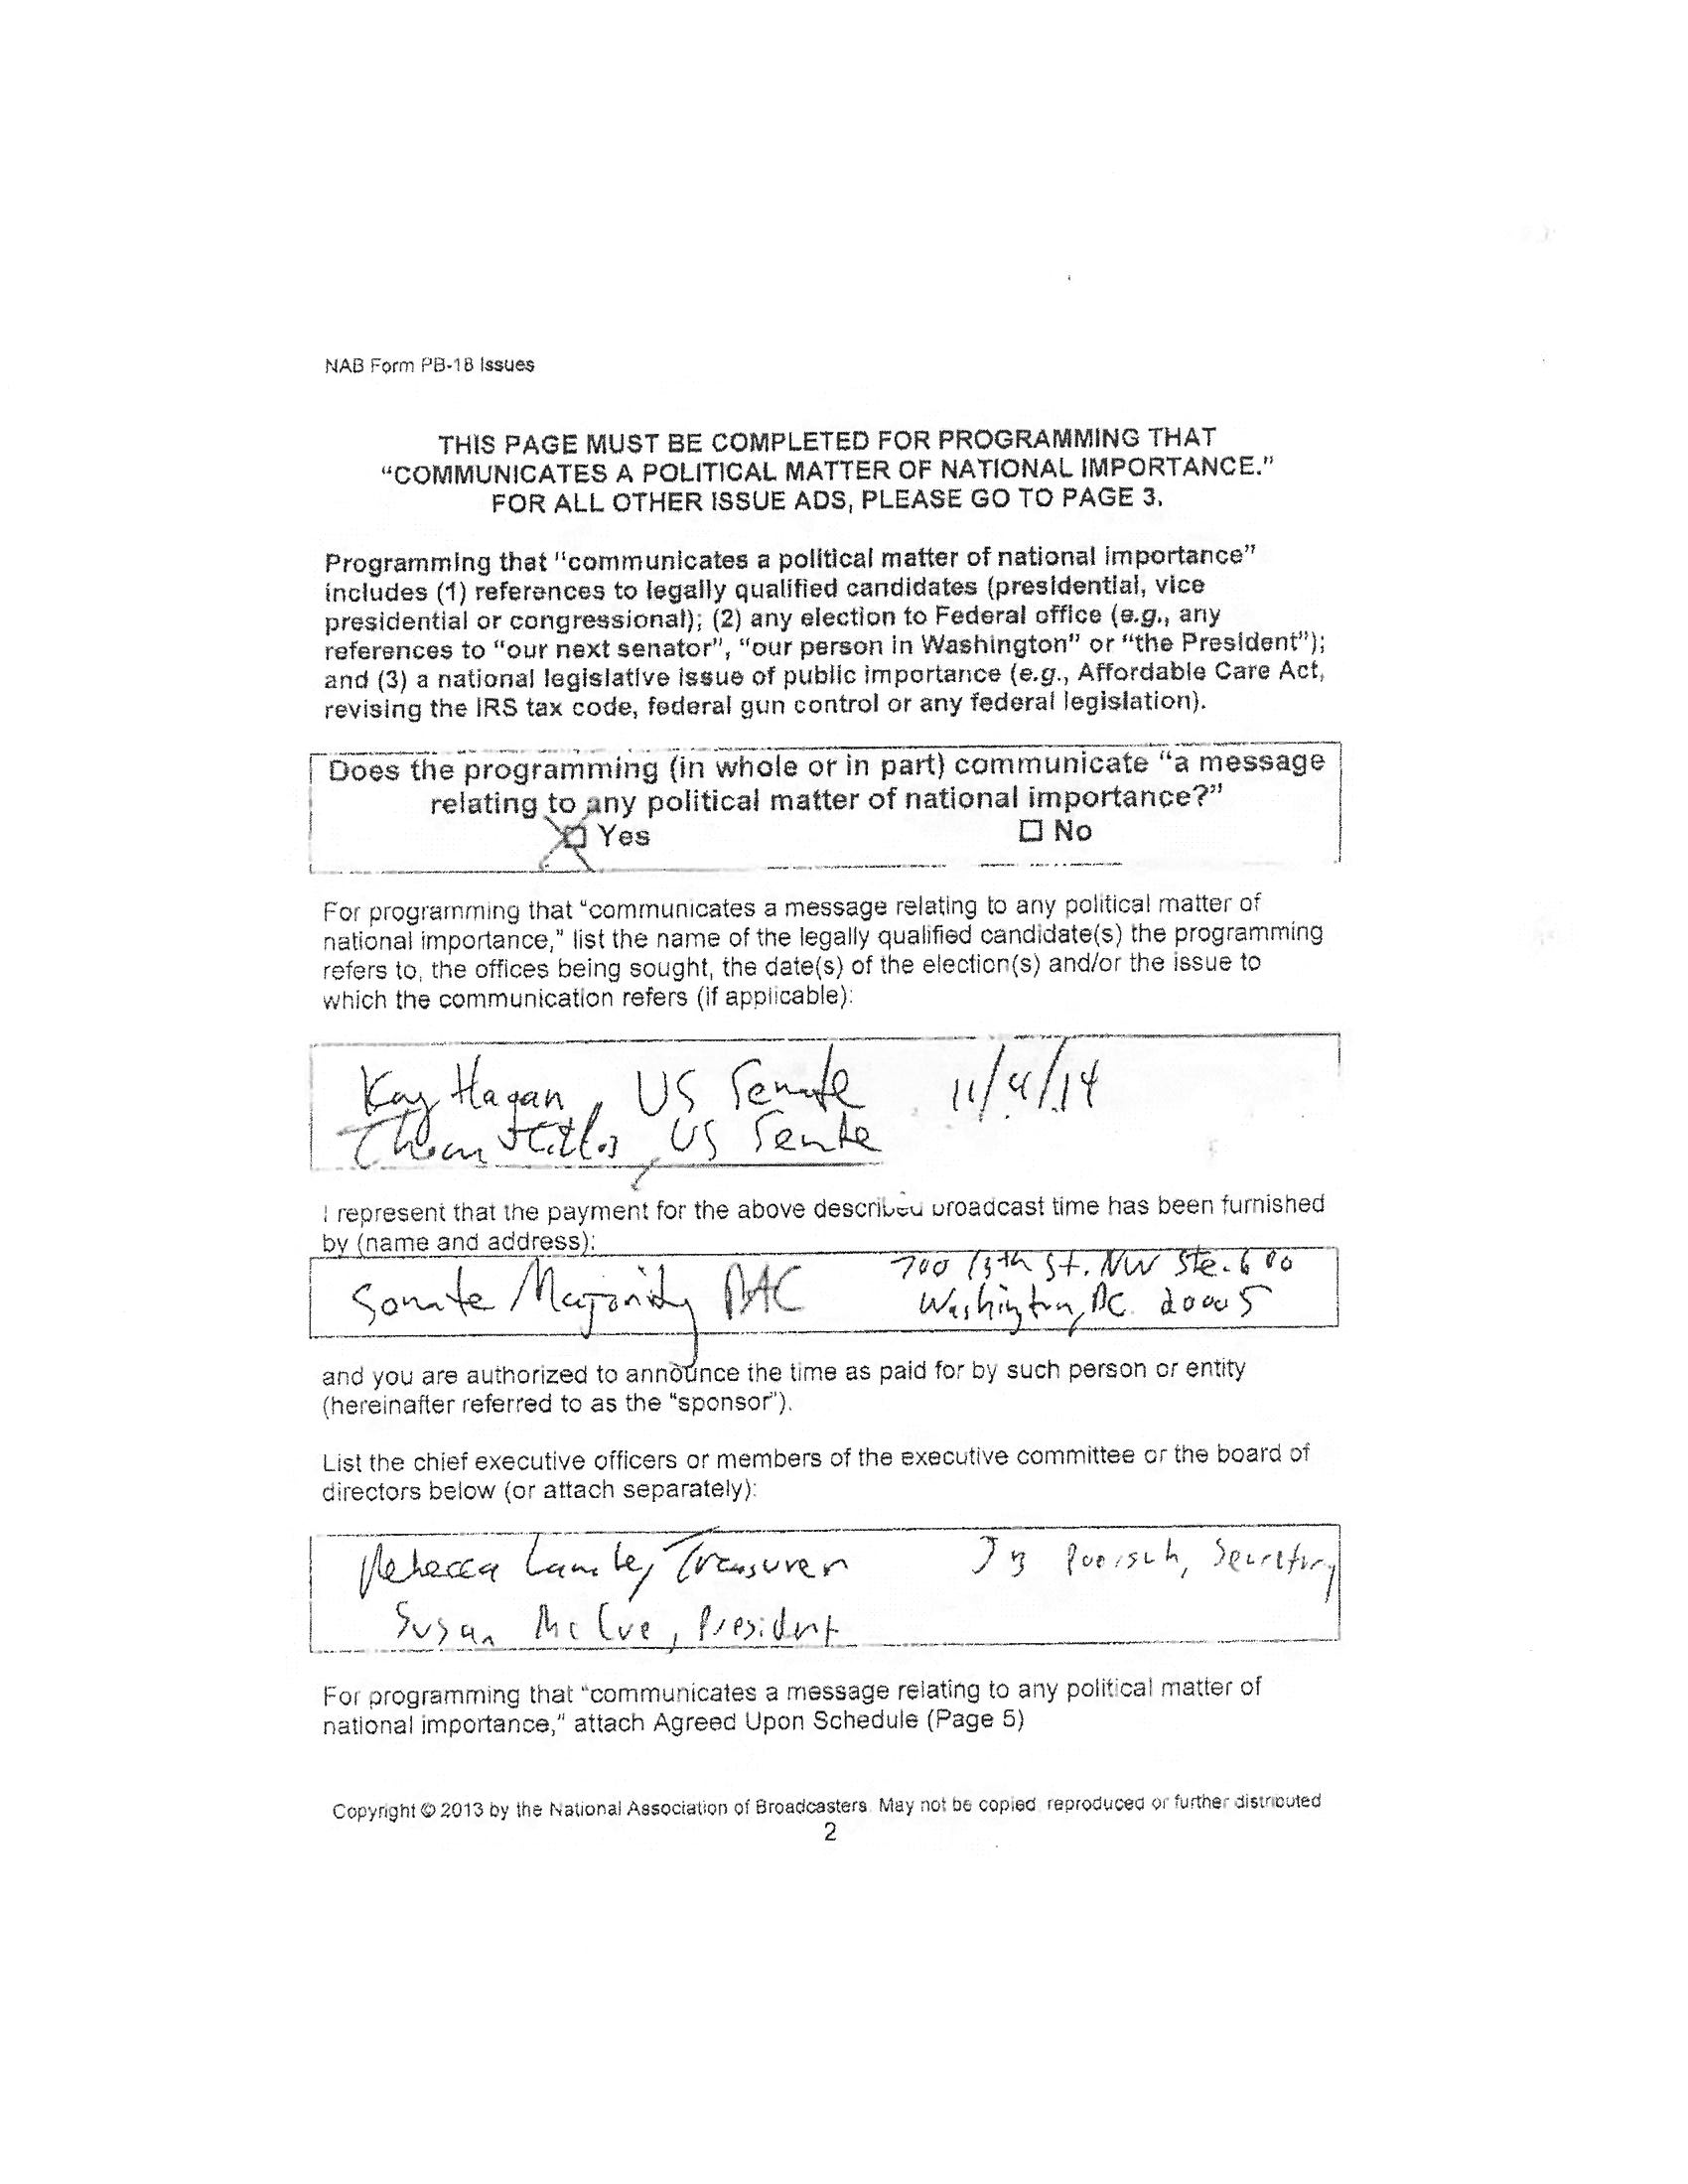 NAB Form PB-18 Issues
THIS PAGE MUST BE COMPLETED FOR PROGRAMMING THAT
“COMMUNICATES A POLITICAL MATTER OF NATIONAL IMPORTANCE.”
FOR ALL OTHER ISSUE ADS, PLEASE GO TO PAGE 3.
Programming that “communicates a political matter of national importance”
includes (1) references to legally qualified candidates (presidential, vice
presidential or congressional); (2) any election to Federal office (e.g., any
references to “our next senator”, “our person in Washington” or “the President”);
and (3) a national legislative issue of public importance (e.g., Affordable Care Act,
revising the IRS tax code, federal gun control or any federal legislation).
Does the programming (in whole or in part) communicate “a message
relating to any political matter of national importance?”
Yes No
For programming that “communicates a message relating to any political matter of
national importance,” list the name of the legally qualified candidate(s) the programming
refers to, the offices being sought, the date(s) of the election(s) and/or the issue to
which the communication refers (if applicable):
Kay Hagan, US Senate 11/4/14
Thom Tillis, US Senate
I represent that the payment for the above described broadcast time has been furnished
by (name and address):
Senate Majority PAC 700 13th St. NW Ste. 600
Washington, DC 20005
and you are authorized to announce the time as paid for by such person or entity
(hereinafter referred to as the “sponsor”).
List the chief executive officers or members of the executive committee or the board of
directors below (or attach separately):
Rebecca Lambe, Treasurer JB Poersch, Secretary
Susan McCue, President
For programming that “communicates a message relating to any political matter of
national importance,” attach Agreed Upon Schedule (Page 5)
Copyright © 2013 by the National Association of Broadcasters. May not be copied, reproduced or further distributed
2